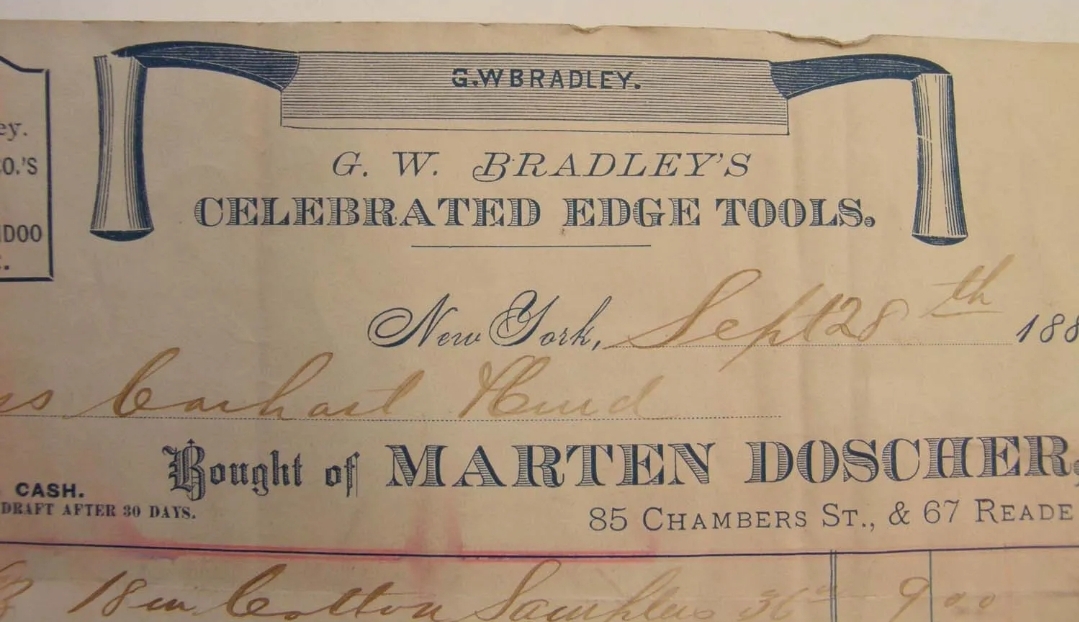 G.W BRADLEY.
G. W. BRADLEY'S
CELEBRATED EDGE TOOLS.
ey.
CO.'S
NDOO
New York, Sept 28th 188
Carhart
Bought of MARTEN DOSCHER,
CASH.
DRAFT AFTER 30 DAYS.
85 CHAMBERS ST., & 67 READE
18 in Cotton 36 9 00